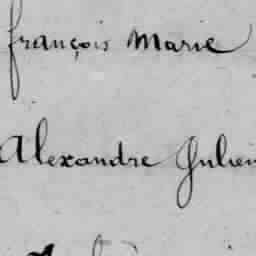 françois Marie
Alexandre Julien